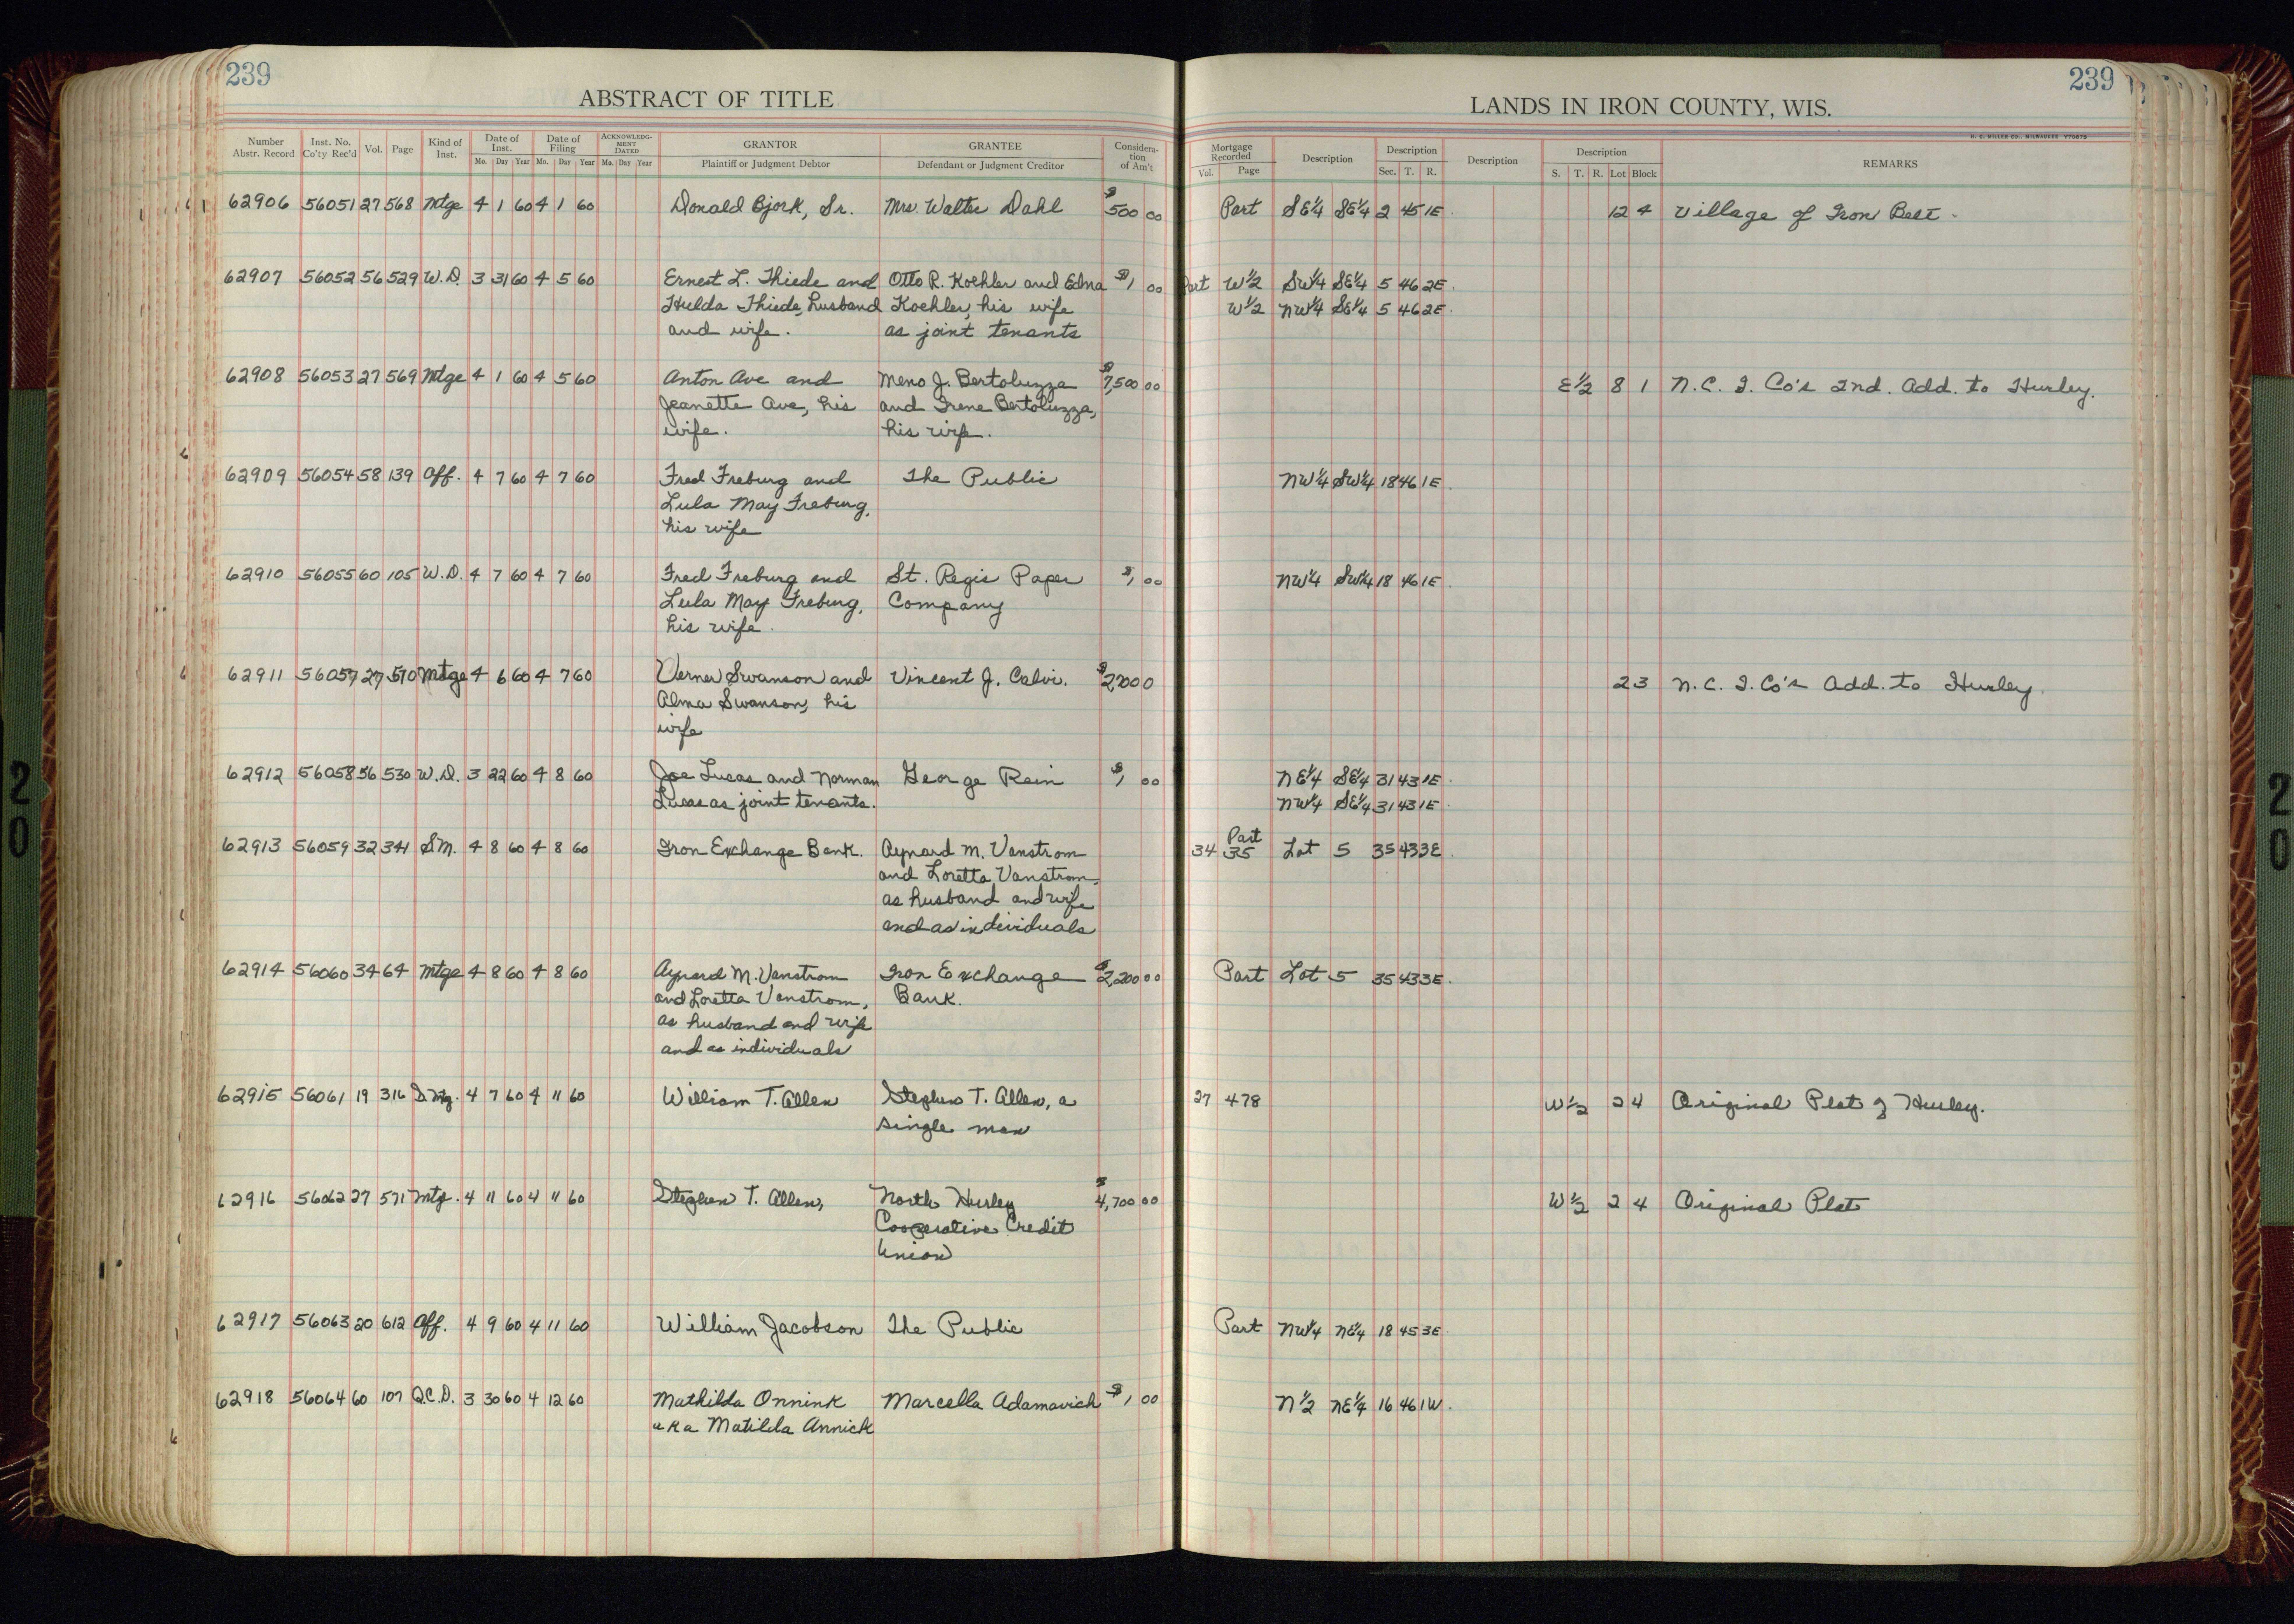 239
ABSTRACT OF TITLE
Number Abstr. Record
Inst. No. Co'ty Rec'd
Vol.
Page
Kind of Inst.
Date of Inst.
Mo. Day Year
Date of Filing
Mo. Day Year
ACKNOWLEDGMENT DATED
Mo. Day Year
GRANTOR
Plaintiff or Judgment Debtor
GRANTEE
Defendant or Judgment Creditor
Consideration of Am't
239
LANDS IN IRON COUNTY, WIS.
H. C. MILLER CO., MILWAUKEE
Mortgage Recorded
Vol. Page
Description
Description
Sec. T. R.
Description
Description
S. T. R. Lot Block
REMARKS
62906 56051 27 568 Mtge 4 1 60 4 1 60 Donald Bjork, Sr. Mrs. Walter Dahl $500 00 Part SE¼ SE¼ 2 45 1E 12 4 Village of Iron Belt
62907 56052 56 529 W.D. 3 31 60 4 5 60 Ernest L. Thiede and Otto R. Koehler and Edna $1 00 Part W½ SW¼ SE¼ 5 46 2E.
Hulda Thiede, husband Koehler, his wife W½ NW¼ SE¼ 5 46 2E.
and wife. as joint tenants
62908 56053 27 569 Mtge 4 1 60 4 5 60 Anton Ave and Meno J. Bertoluzza $7,500 00 E½ 8 1 N.C. I. Co's 2nd. Add. to Hurley.
Jeanette Ave, his and Irene Bertoluzza,
wife. his wife.
62909 56054 58 139 Aff. 4 7 60 4 7 60 Fred Freburg and The Public NW¼ SW¼ 18 46 1E.
Lula May Freburg,
his wife
62910 56055 60 105 W.D. 4 7 60 4 7 60 Fred Freburg and St. Regis Paper $1 00 NW¼ SW¼ 18 46 1E.
Lula May Freburg, Company
his wife.
62911 56057 27 570 Mtge 4 6 60 4 7 60 Verner Swanson and Vincent J. Calvi. $2,200 0 2 3 N.C. I. Co's Add. to Hurley.
Alma Swanson, his
wife
62912 56058 56 530 W.D. 3 22 60 4 8 60 Joe Lucas and Norman George Rein $1 00 NE¼ SE¼ 31 43 1E.
Lucas as joint tenants. NW¼ SE¼ 31 43 1E.
62913 56059 32 341 S.M. 4 8 60 4 8 60 Iron Exchange Bank. Aynard M. Vanstrom 34 Part 35 Lot 5 35 43 3E
and Loretta Vanstrom,
as husband and wife
and as individuals
62914 56060 34 64 Mtge 4 8 60 4 8 60 Aynard M. Vanstrom Iron Exchange $2,200 00 Part Lot 5 35 43 3E.
and Loretta Vanstrom, Bank.
as husband and wife
and as individuals
62915 56061 19 316 D. Mtg. 4 7 60 4 11 60 William T. Allen Stephen T. Allen, a 27 478 W½ 2 4 Original Plat of Hurley.
single man
62916 56062 27 571 Mtg. 4 11 60 4 11 60 Stephen T. Allen, North Hurley $4,700 00 W½ 2 4 Original Plat
Cooperative Credit
Union
62917 56063 20 612 Aff. 4 9 60 4 11 60 William Jacobson The Public Part NW¼ NE¼ 18 45 3E
62918 56064 60 107 Q.C.D. 3 30 60 4 12 60 Mathilda Onnink Marcella Adamavich $1 00 N½ NE¼ 16 46 1W.
aka Matilda Annick
20
20